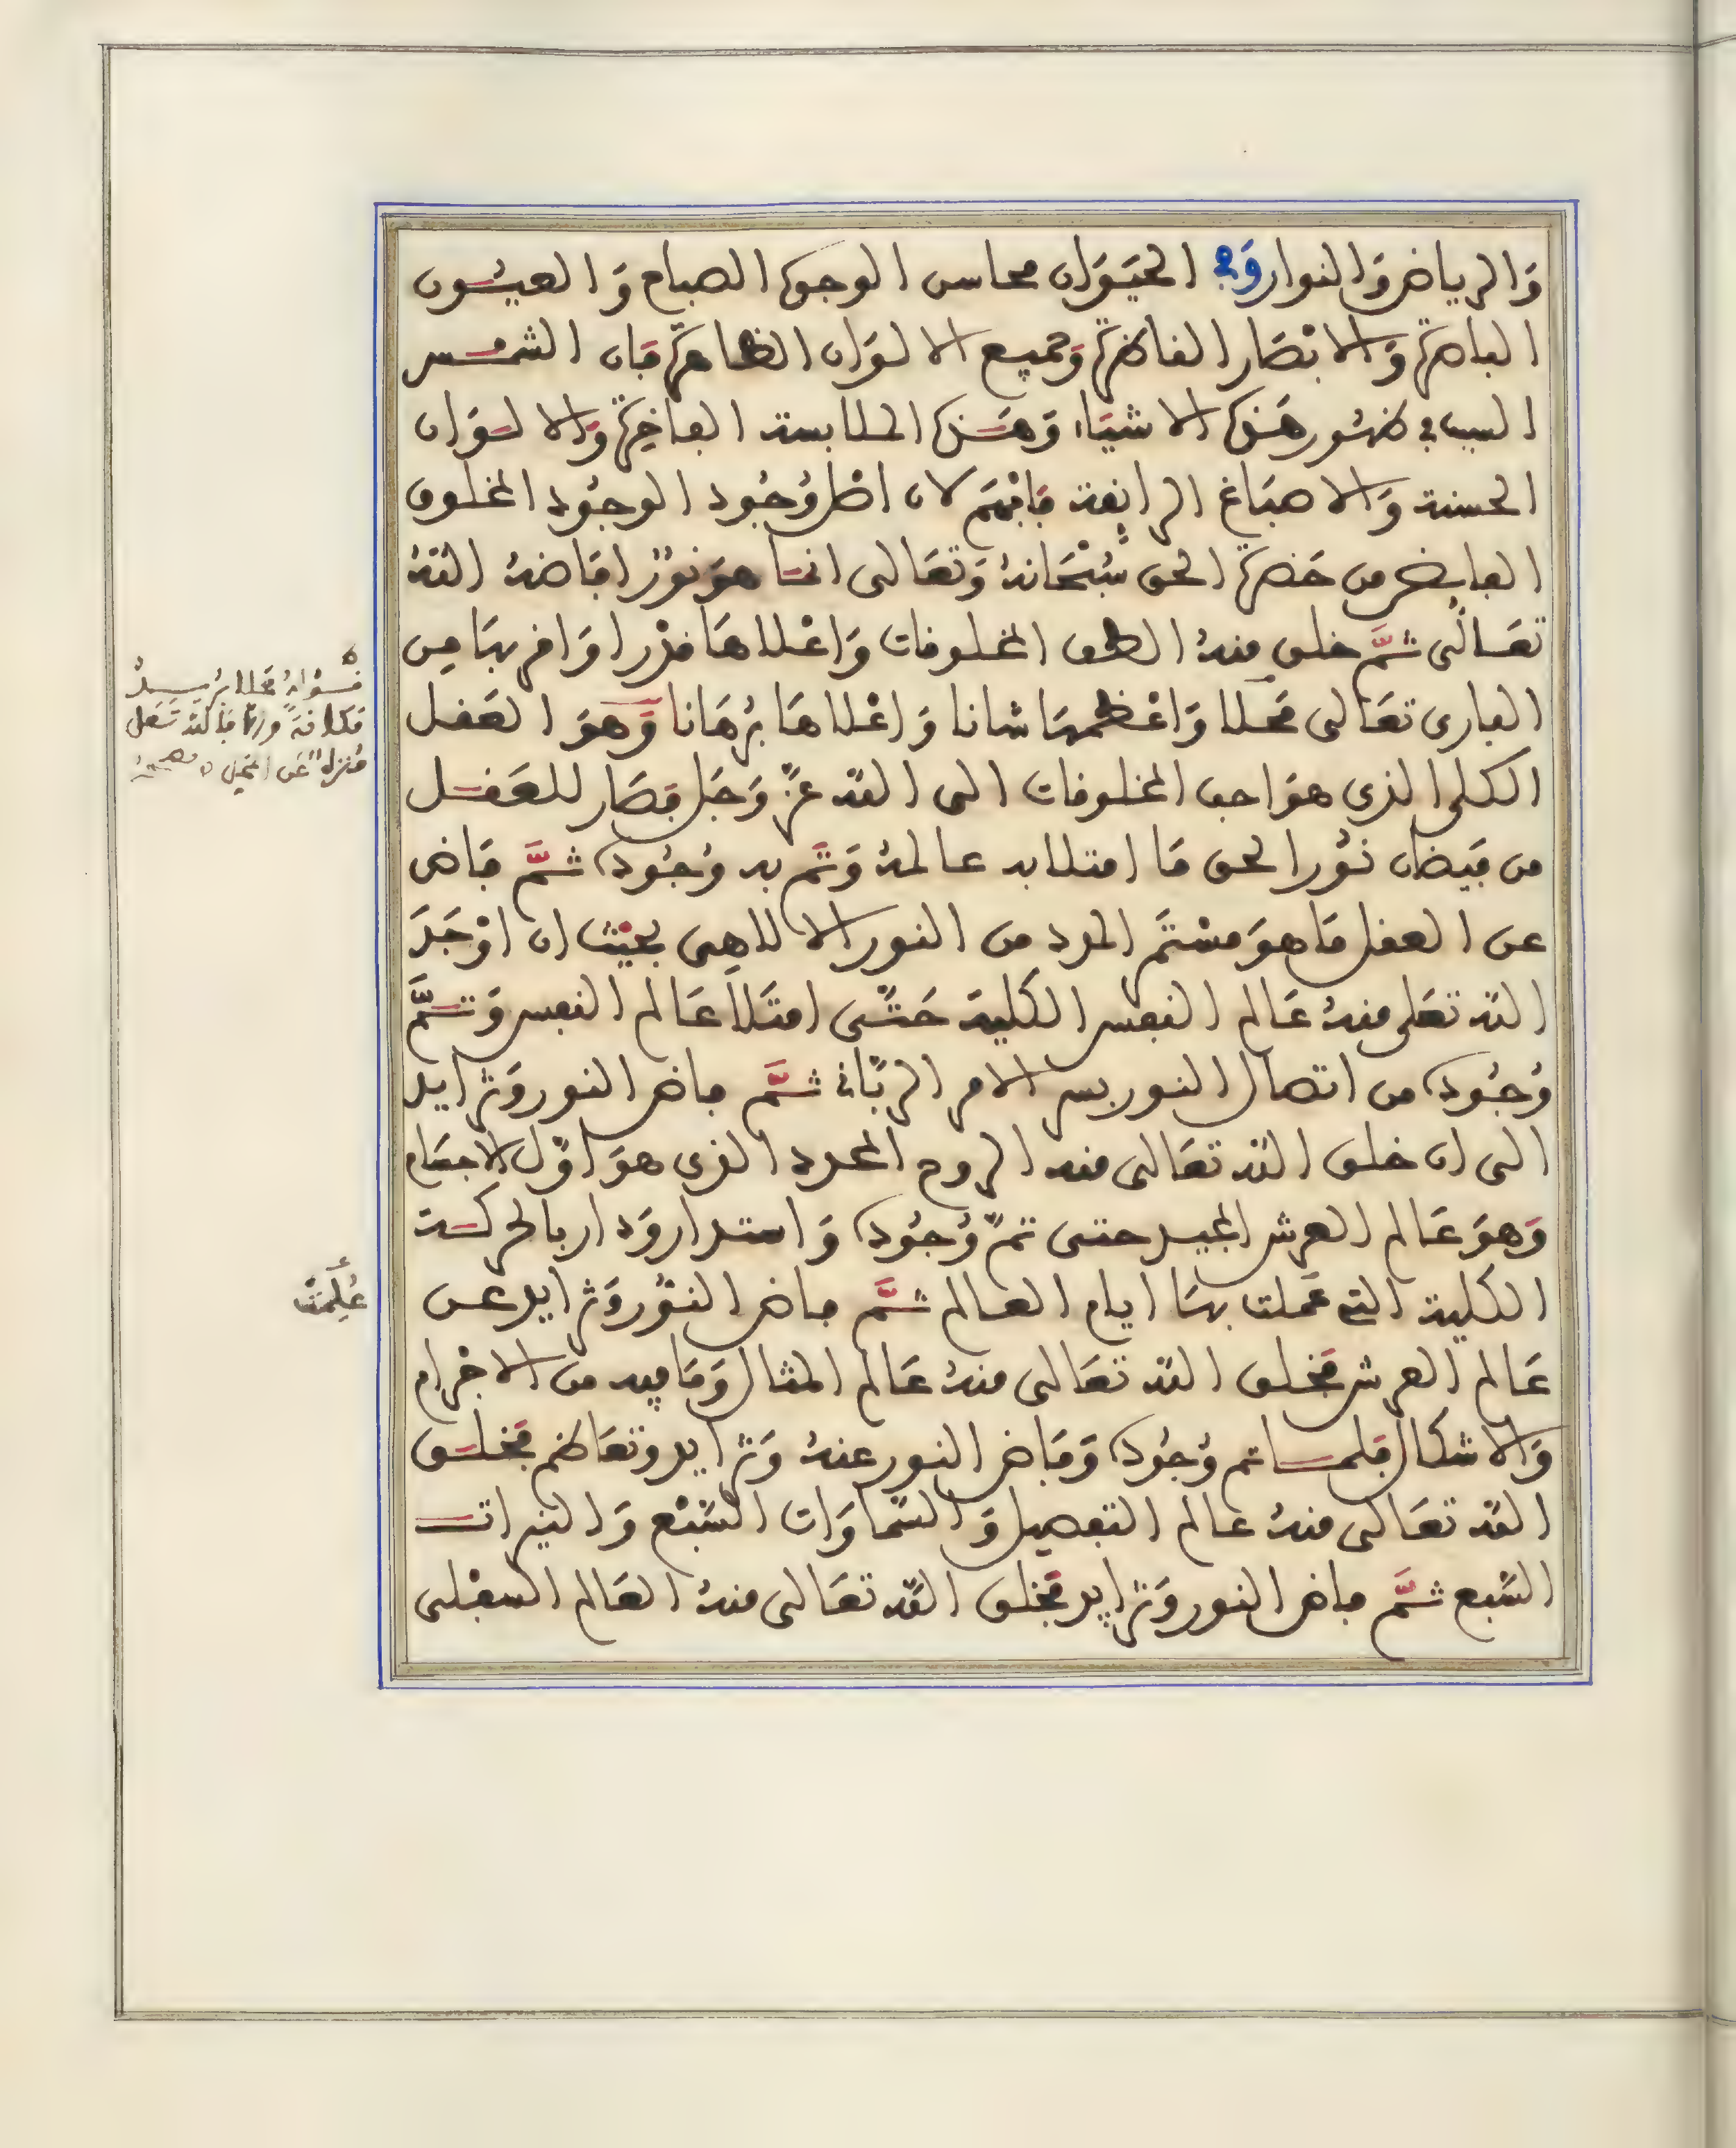 وَالرياض وَالنوار وَفي الحيَوَان محاسن الوجوه الصباح وَالعيُون
الباصرة وَالابْصَار الناظرة وَجميع الالوَان الظاهرة فَان الشمس
السبب في ظهُور هَذه الاشيَاء وَهَذه الملابسة الفاخرة وَالالوَان
الحسنة وَالاصبَاغ الرايقة فَافْهَم لان اصْل وُجُود الوجُود المخلوق
الفايض من حَضرة الحق سُبْحَانهُ وَتعَالى انمَا هوَ نوْرٌ افَاضهُ اللهُ
تعَالى ثمَّ خلق منهُ الطف المخلوقات وَاعْلاهَا قدْرا وَاقربهَا مِن
البارى تعَالى مَحَلا وَاعْظمهَا شانا وَاعْلاهَا بُرْهَانا وَهوَ العَقل
الكلى الذى هوَ احب المخلوقات الى الله عزّ وَجَل فصَار للعَقل
من فيَضَان نُور الحق مَا امتلا به عالمهُ وَتمَّ به وُجُوده ثمَّ فَاض
عن العقل مَا هوَ مسْتَمَر المدد من النور الالاهِى بحيْث ان اوْجَدَ
الله تعَلى منهُ عَالم النفس الكلية حَتَّى امتَلأ عَالم النفس وَتمَّ
وُجُوده من اتصال النور بسر الامر الربَّانى ثمَّ فاض النور وَتزايد
الى ان خلق الله تعَالى منه الروح المحدد الذى هوَ اوّل الاجسَام
وَهوَ عَالم العرش المجيد حتى تمّ وُجُوده وَاستدار وَدار بالحركة
الكلية التي عَملت بهَا ايام العالم ثمَّ فاض النوُر وَتزايد عن
عَالم العرش فخلق الله تعَالى منهُ عَالم المثال وَمَا فيه من الاجْرام
وَالاشكال فلما تم وُجُوده وَفَاض النور عنهُ وَتزايد وتعَاظم فخلق
الله تعَالى منهُ عالم التفصيل وَالسَّمَاوَات السّبْع وَالنيرات
السّبع ثمَّ فاض النور وَتزايد فخلق الله تعَالى منهُ العَالم السفْلى
قوْلهُ مَحَلا يُريدُ
مَكانَة فَالله تعَلى
مُنزهٌ عَن
عُلِمَتْ